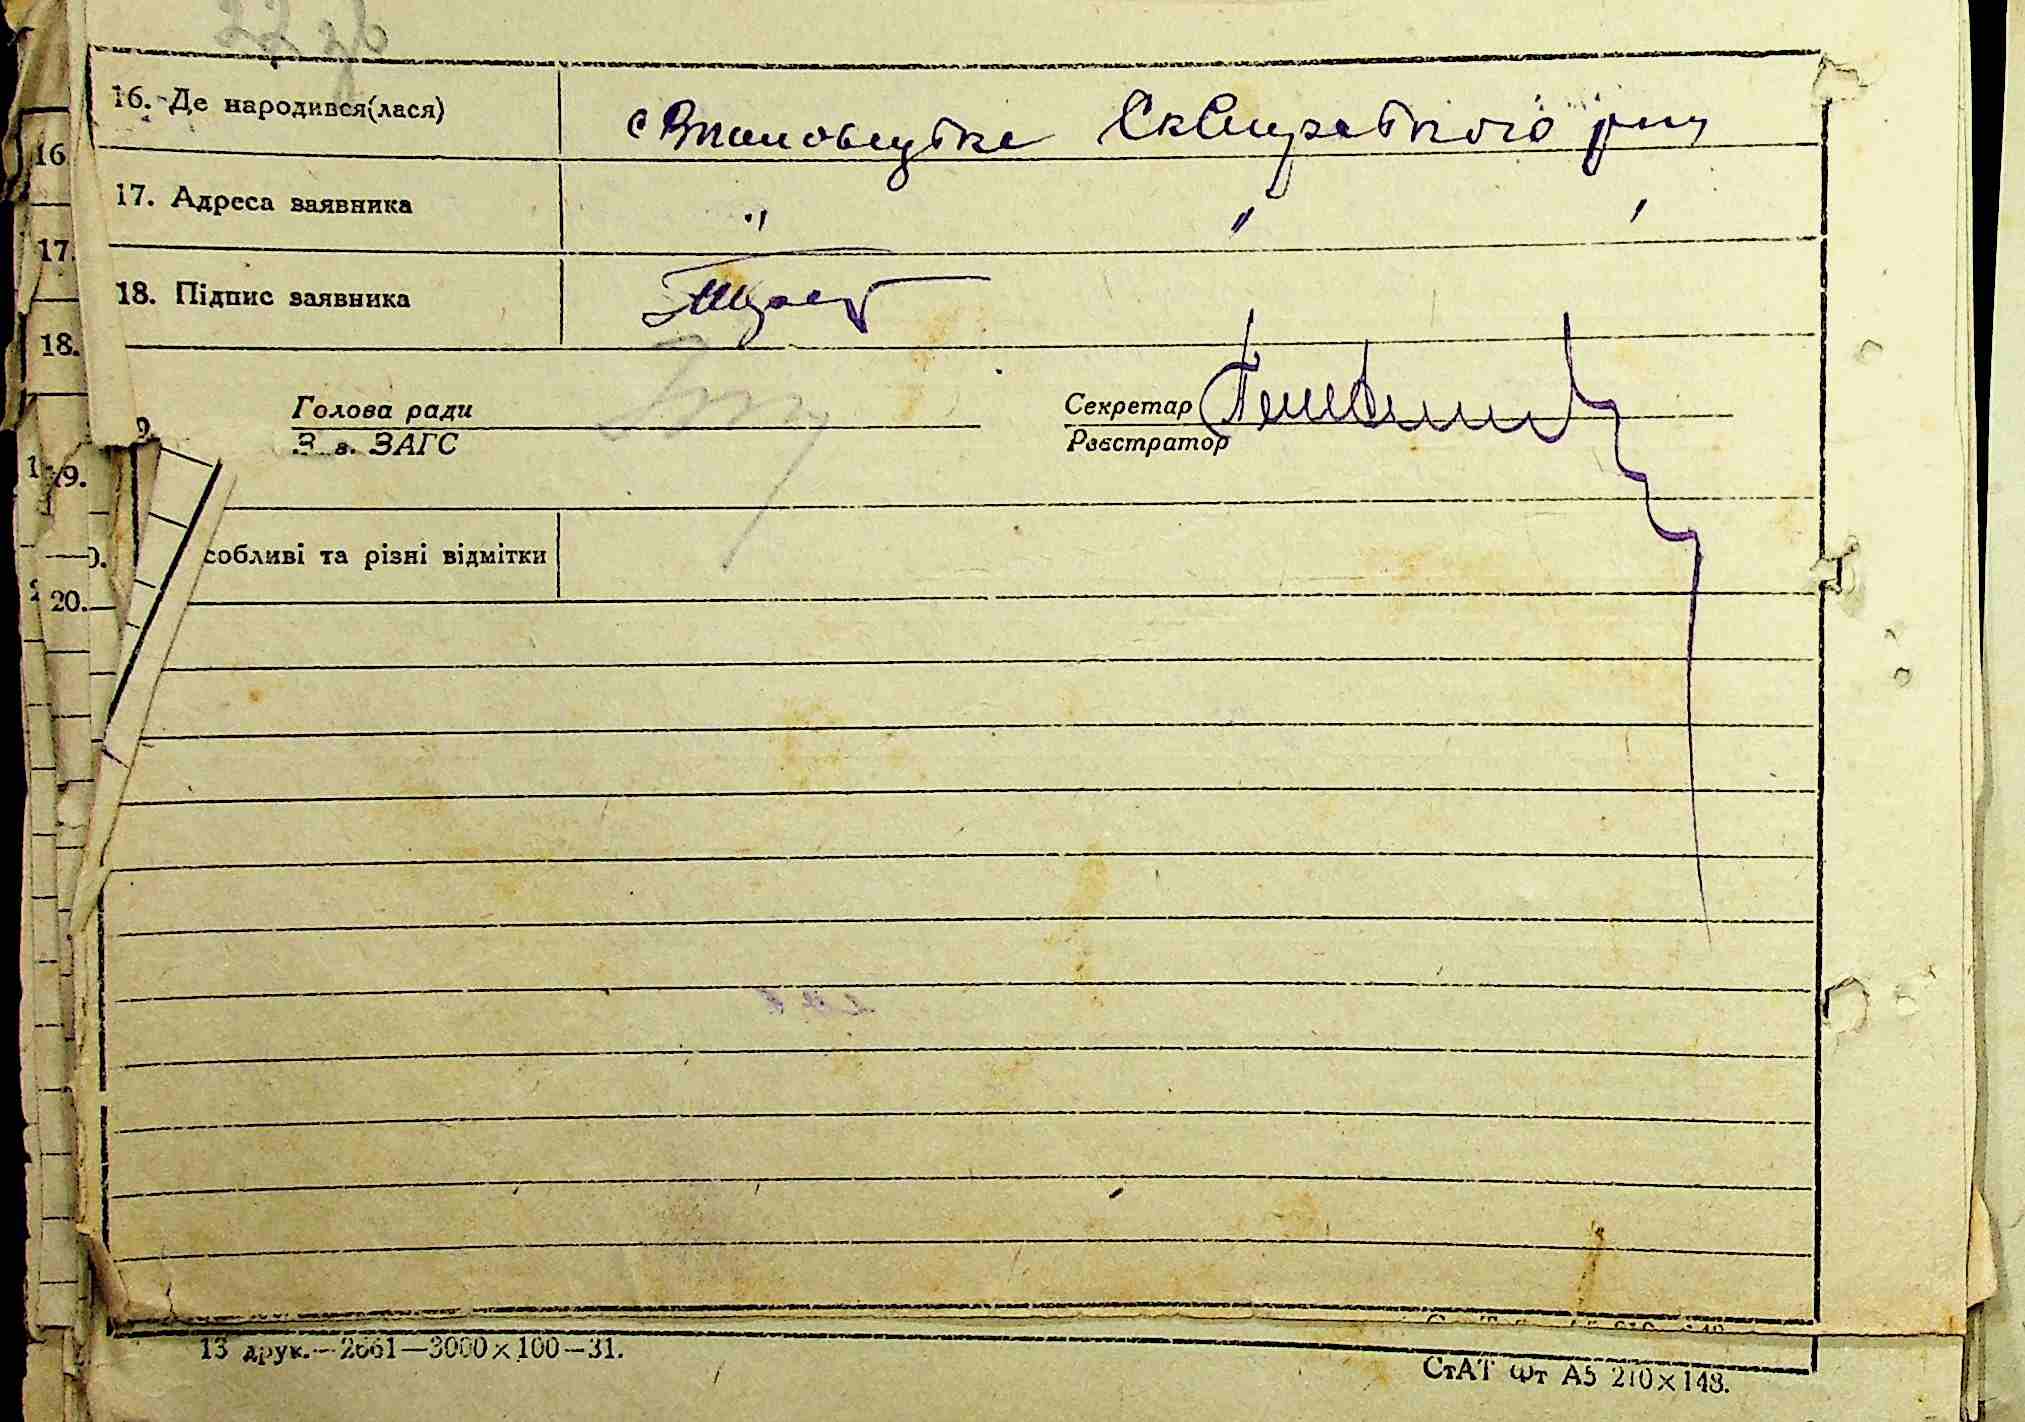 22 зв
16. Де народився(лася) с Сквирського рну
17. Адреса заявника " " "
18. Підпис заявника
Голова ради
Зав. ЗАГС
Секретар
Реєстратор
собливі та різні відмітки
16
17.
18.
19.
20.
13 друк.—2661—3000×100—31.
СтАТ Фт А5 210×148.